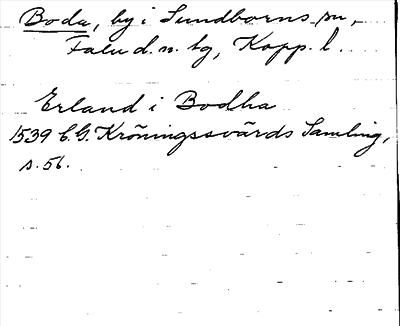 Boda, by i Sundborns sn,
Falu d.n. tg, Kopp. l.
Erland i Bodha
1539 C.G. Kröningssvärds Samling,
s. 56.